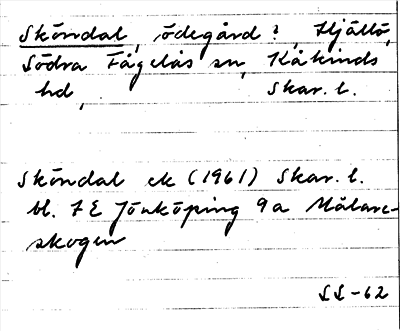 Sköndal, ödegård?, Hjällö,
Södra Fågelås sn, Kåkinds
hd, Skar. l.
Sköndal ek (1961) Skar. l.
bl. 7E Jönköping 9a Målare-
skogen
SS-62